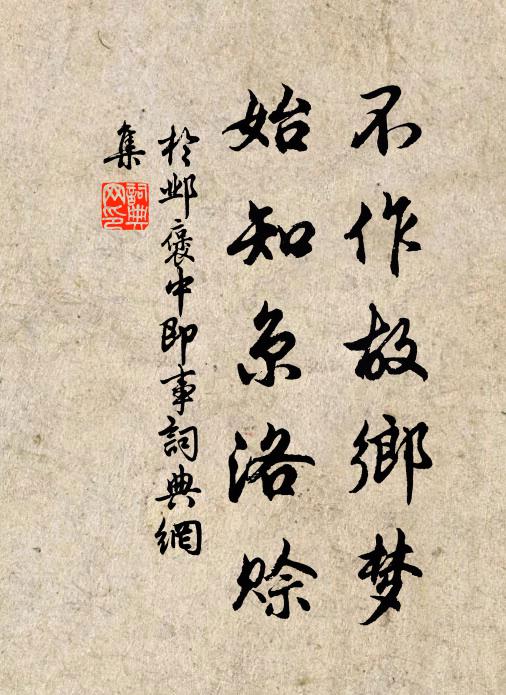 不作故鄉梦
始知京洛赊
於邺褒中即事詞典網
集
詞典
网印